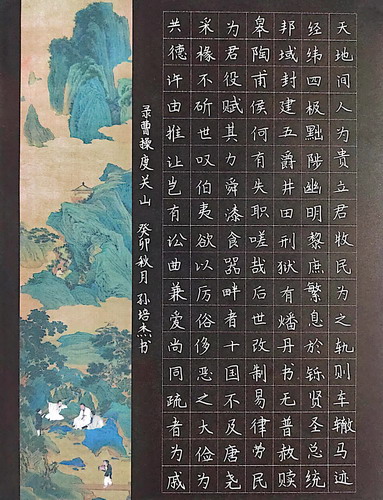 天地间人为贵立君牧民为之轨则车辙马迹
经纬四极黜陟幽明黎庶繁息於铄贤圣总统
邦域封建五爵井田刑狱有燔丹书无普赦赎
皋陶甫侯何有失职嗟哉后世改制易律劳民
为君役赋其力舜漆食器畔者十国不及唐尧
采椽不斫世叹伯夷欲以厉俗侈恶之大俭为
共德许由推让岂有讼曲兼爱尚同疏者为戚
录曹操度关山 癸卯秋月 孙培杰书